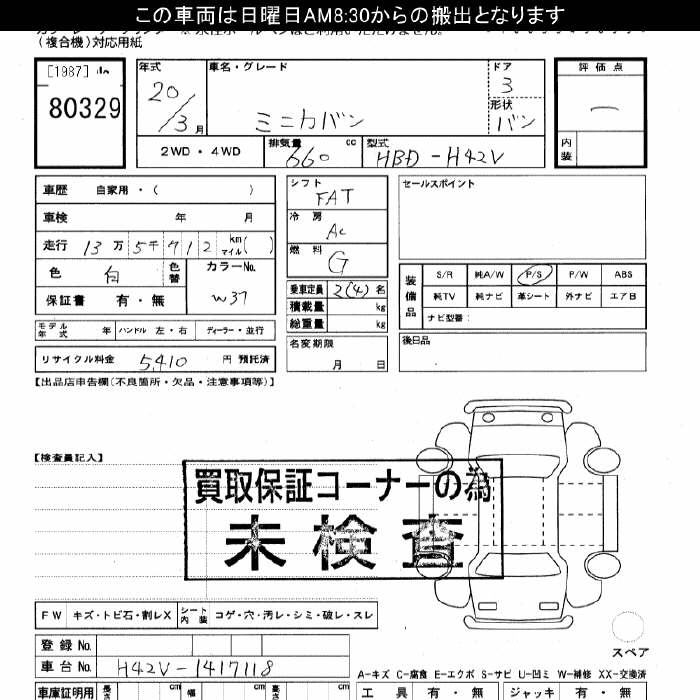 この車両は日曜日AM8:30からの搬出となります
(複合機)対応用紙
[1987]
80329
年式 20/3月
車名・グレード ミニカバン
ドア 3
形状 バン
評価点 —
内装
2WD・4WD
排気量 660 cc
型式 HBD-H42V
車歴 自家用・( )
車検 年 月
走行 13万5千912 km マイル( )
色 白 色替 カラーNo. W37
保証書 有・無
モデル年式 年 ハンドル 左・右 ディーラー・並行
リサイクル料金 5,410 円 預託済
シフト FAT
冷房 AC
燃料 G
乗車定員 2(4)名
積載量 kg
総重量 kg
名変期限 月 日
セールスポイント
装備品 S/R 純A/W P/S P/W ABS
純TV 純ナビ 革シート 外ナビ エアB
ナビ型番:
後日品
【出品店申告欄(不良箇所・欠品・注意事項等)】
【検査員記入】
買取保証コーナーの為
未検査
FW キズ・トビ石・割レX シート内装 コゲ・穴・汚レ・シミ・破レ・スレ
スペア
登録No.
車台No. H42V-1417118
A-キズ C-腐食 E-エクボ S-サビ U-凹ミ W-補修 XX-交換済
車庫証明用 長さ cm 幅 cm 高さ cm
工具 有・無 ジャッキ 有・無